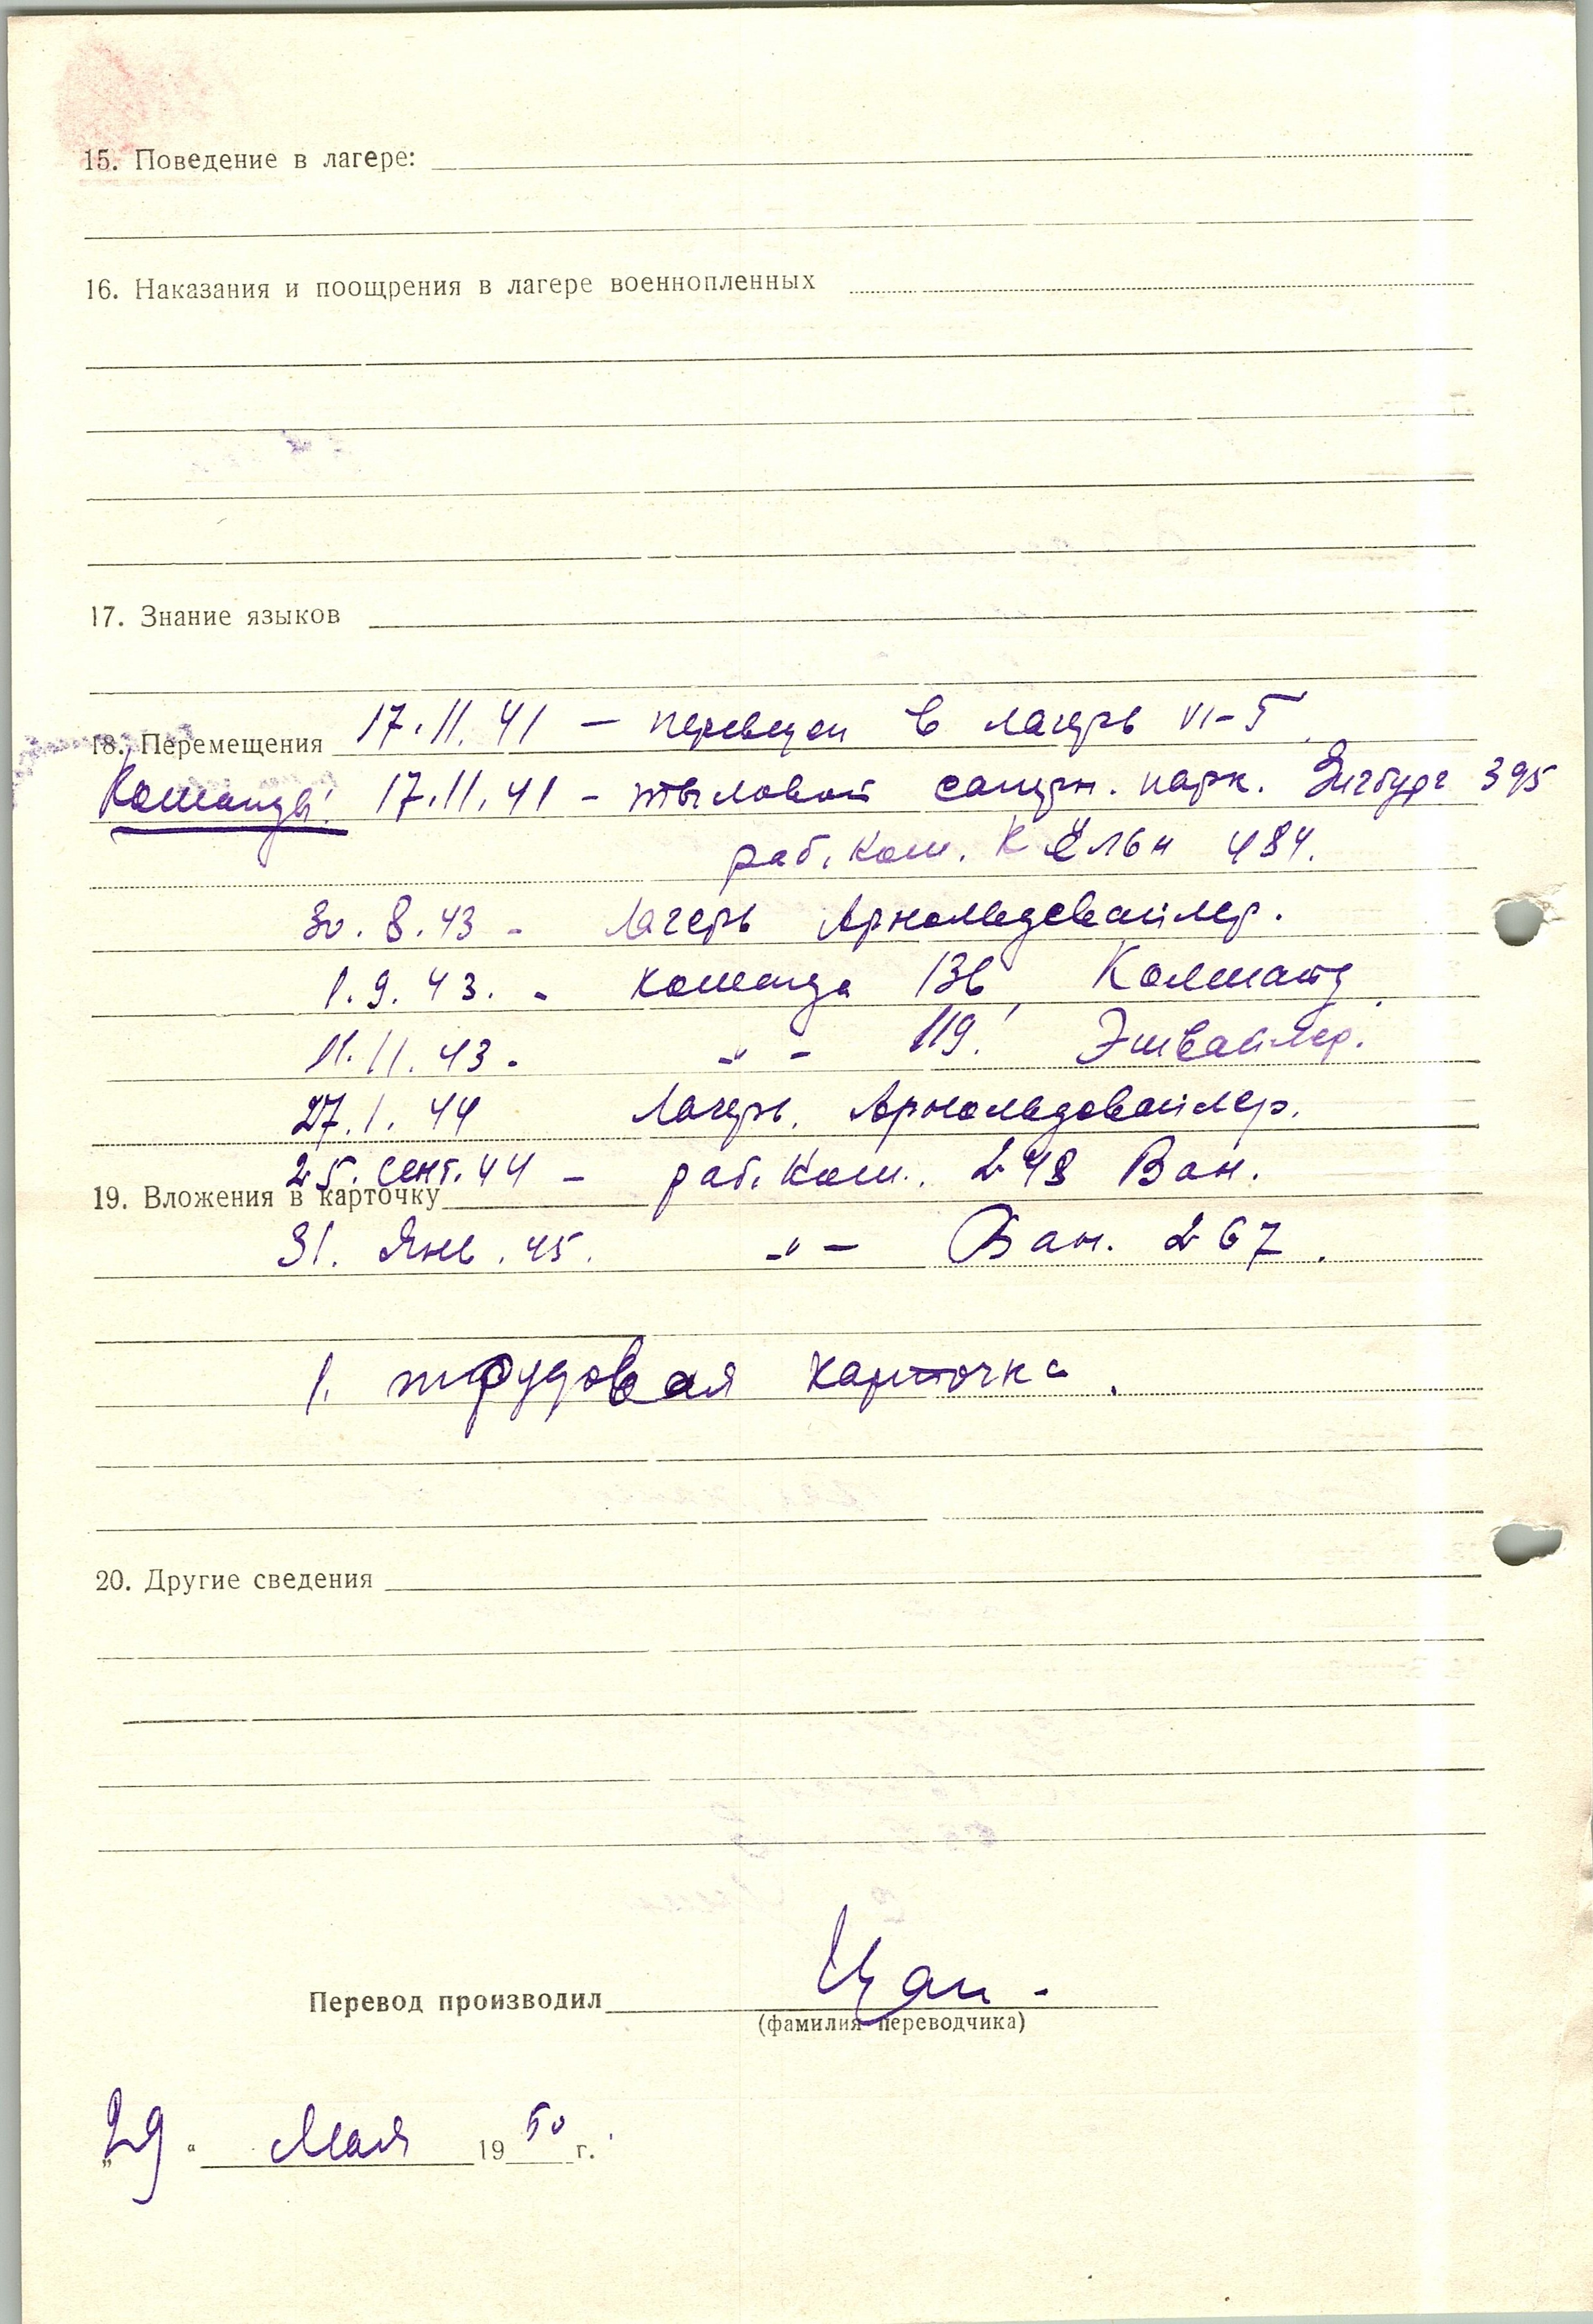 15. Поведение в лагере:
16. Наказания и поощрения в лагере военнопленных
17. Знание языков
18. Перемещения 17.11.41 – переведен в лагерь VI-Г.
Команды: 17.11.41 – тыловой саперн. парк. Зигбург 395
раб. ком. Кёльн 484.
30.8.43 - Лагерь Арнольдсвайлер.
1.9.43. - команда 136
11.11.43. -„- 119. Эшвайлер.
27.1.44 Лагерь. Арнольдсвайлер.
25. сент. 44 – раб. ком. 248 Ван.
19. Вложения в карточку
31. Янв. 45. -„- Ван. 267.
1. трудовая карточка.
20. Другие сведения
Перевод производил
(фамилия переводчика)
„29“ Мая 1950 г.